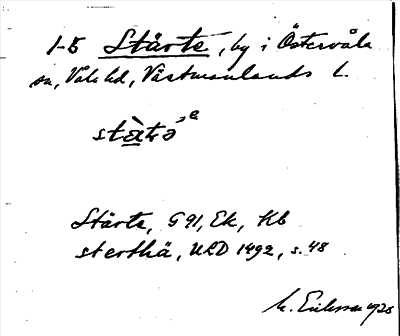 1-5 Stärte, by i Östervåla
sn, Våla hd, Västmanlands l.
Stärte, G 91, Ek, Kb
sterthä, ULD 1492, s. 48
M. Eriksson 1928